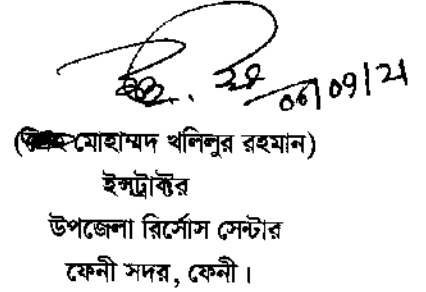 06/09/21
(মোহাম্মদ খলিলুর রহমান)
ইন্সট্রাক্টর
উপজেলা রির্সোস সেন্টার
ফেনী সদর, ফেনী।